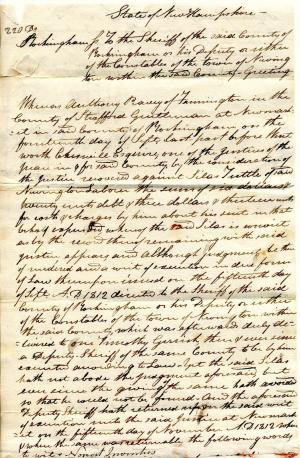 State of New Hampshire
Rockingham ss To the Sheriff of the said County of
Rockingham or his Deputy or either
of the Constables of the town of Newing
ton within the said County Greeting
Whereas Anthony of Farmington in the
County of Strafford Gentleman at Newmark
et in said County of Rockingham on the
fourteenth day of Sept last past before Went
worth Esquire, one of the Justices of the
Peace in & for said County by the consideration of
the Justice recovered against Silas Tuttle of said
Newington Labourer the sum of six dollars &
twenty cents debt & three dollars & thirteen cents
for costs & charges by him about his suit in that
behalf expended whereof the said Silas is convict
as by the record thereof remaining with said
Justice appears and although Judgment be there
of rendered and a writ of execution in due form
of Law thereupon issued on the fifteenth day
of Sept A.D 1812 directed to the Sheriff of the said
County of Rockingham or his Deputy or either
of the Constables of the town of Newington with
the said County, which was afterwards duly del
ivered to one Timothy Gerrish then & ever since
a Deputy Sheriff of the same County to be by him
executed according to Law, yet the said Silas
hath not above the Judgment aforesaid but
ever since delivery of the same hath avoided
so that he could not be found. And the aforesaid
Deputy Sheriff hath returned upon the said writ
of execution unto the said Justice at Newmark
et on the fifteenth day of November A.D 1812 when
& where the same was returnable the following words
to wit